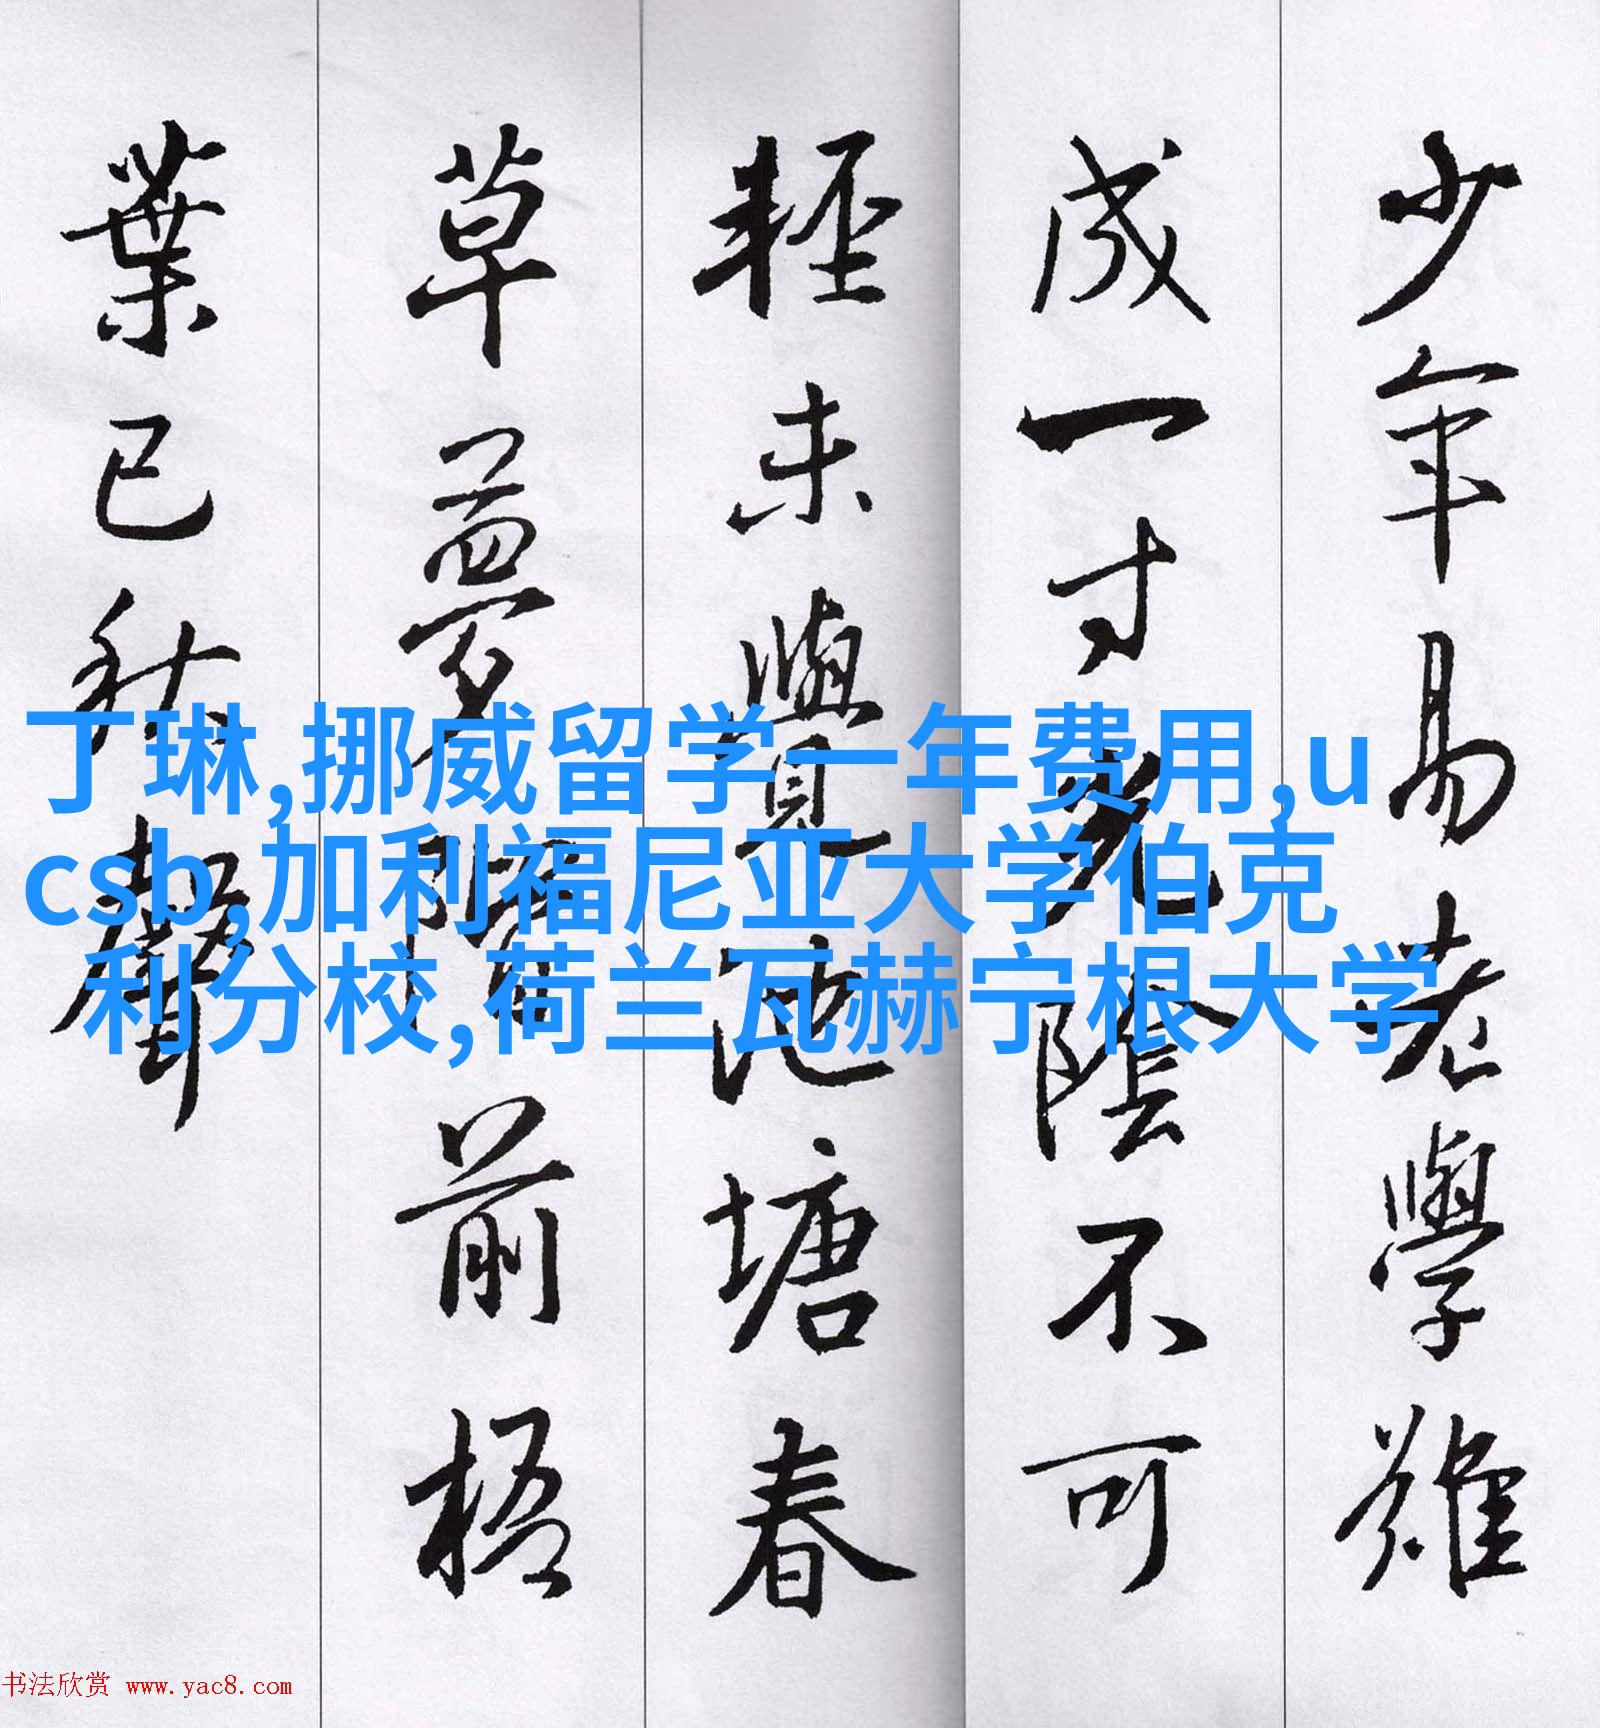 少年易老學難
成一寸光陰不可
輕未覺池塘春
草夢階前梧
葉已秋聲
丁琳,挪威留学一年费用,u
csb,加利福尼亚大学伯克
利分校,荷兰瓦赫宁根大学
书法欣赏 www.yac8.com